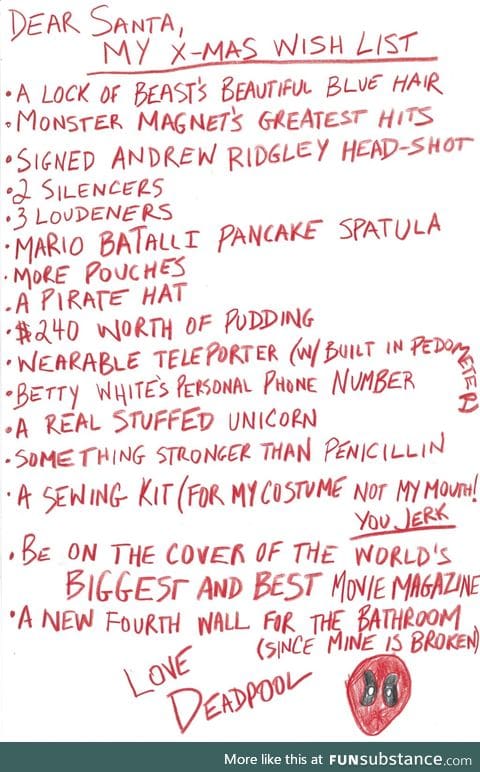 DEAR SANTA,
MY X-MAS WISH LIST
• A LOCK OF BEAST'S BEAUTIFUL BLUE HAIR
• MONSTER MAGNET'S GREATEST HITS
• SIGNED ANDREW RIDGLEY HEAD-SHOT
• 2 SILENCERS
• 3 LOUDENERS
• MARIO BATALLI PANCAKE SPATULA
• MORE POUCHES
• A PIRATE HAT
• $240 WORTH OF PUDDING
• WEARABLE TELEPORTER (W/ BUILT IN PEDOMETER)
• BETTY WHITE'S PERSONAL PHONE NUMBER
• A REAL STUFFED UNICORN
• SOMETHING STRONGER THAN PENICILLIN
• A SEWING KIT (FOR MY COSTUME NOT MY MOUTH!
YOU JERK
• BE ON THE COVER OF THE WORLD'S
BIGGEST AND BEST MOVIE MAGAZINE
• A NEW FOURTH WALL FOR THE BATHROOM
(SINCE MINE IS BROKEN)
LOVE
DEADPOOL
More like this at FUNsubstance.com